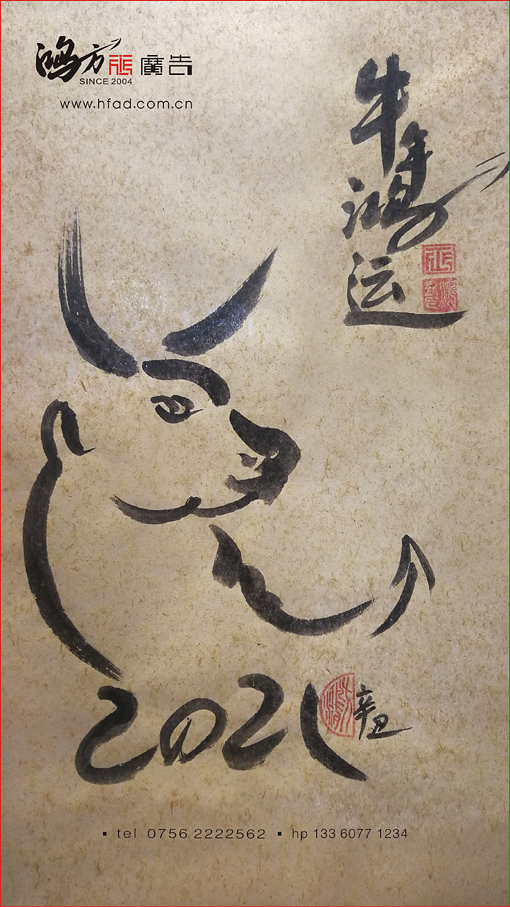 鸿方 廣告
SINCE 2004
www.hfad.com.cn
牛年鸿运
2021
辛丑
▪ tel 0756 2222562 ▪ hp 133 6077 1234